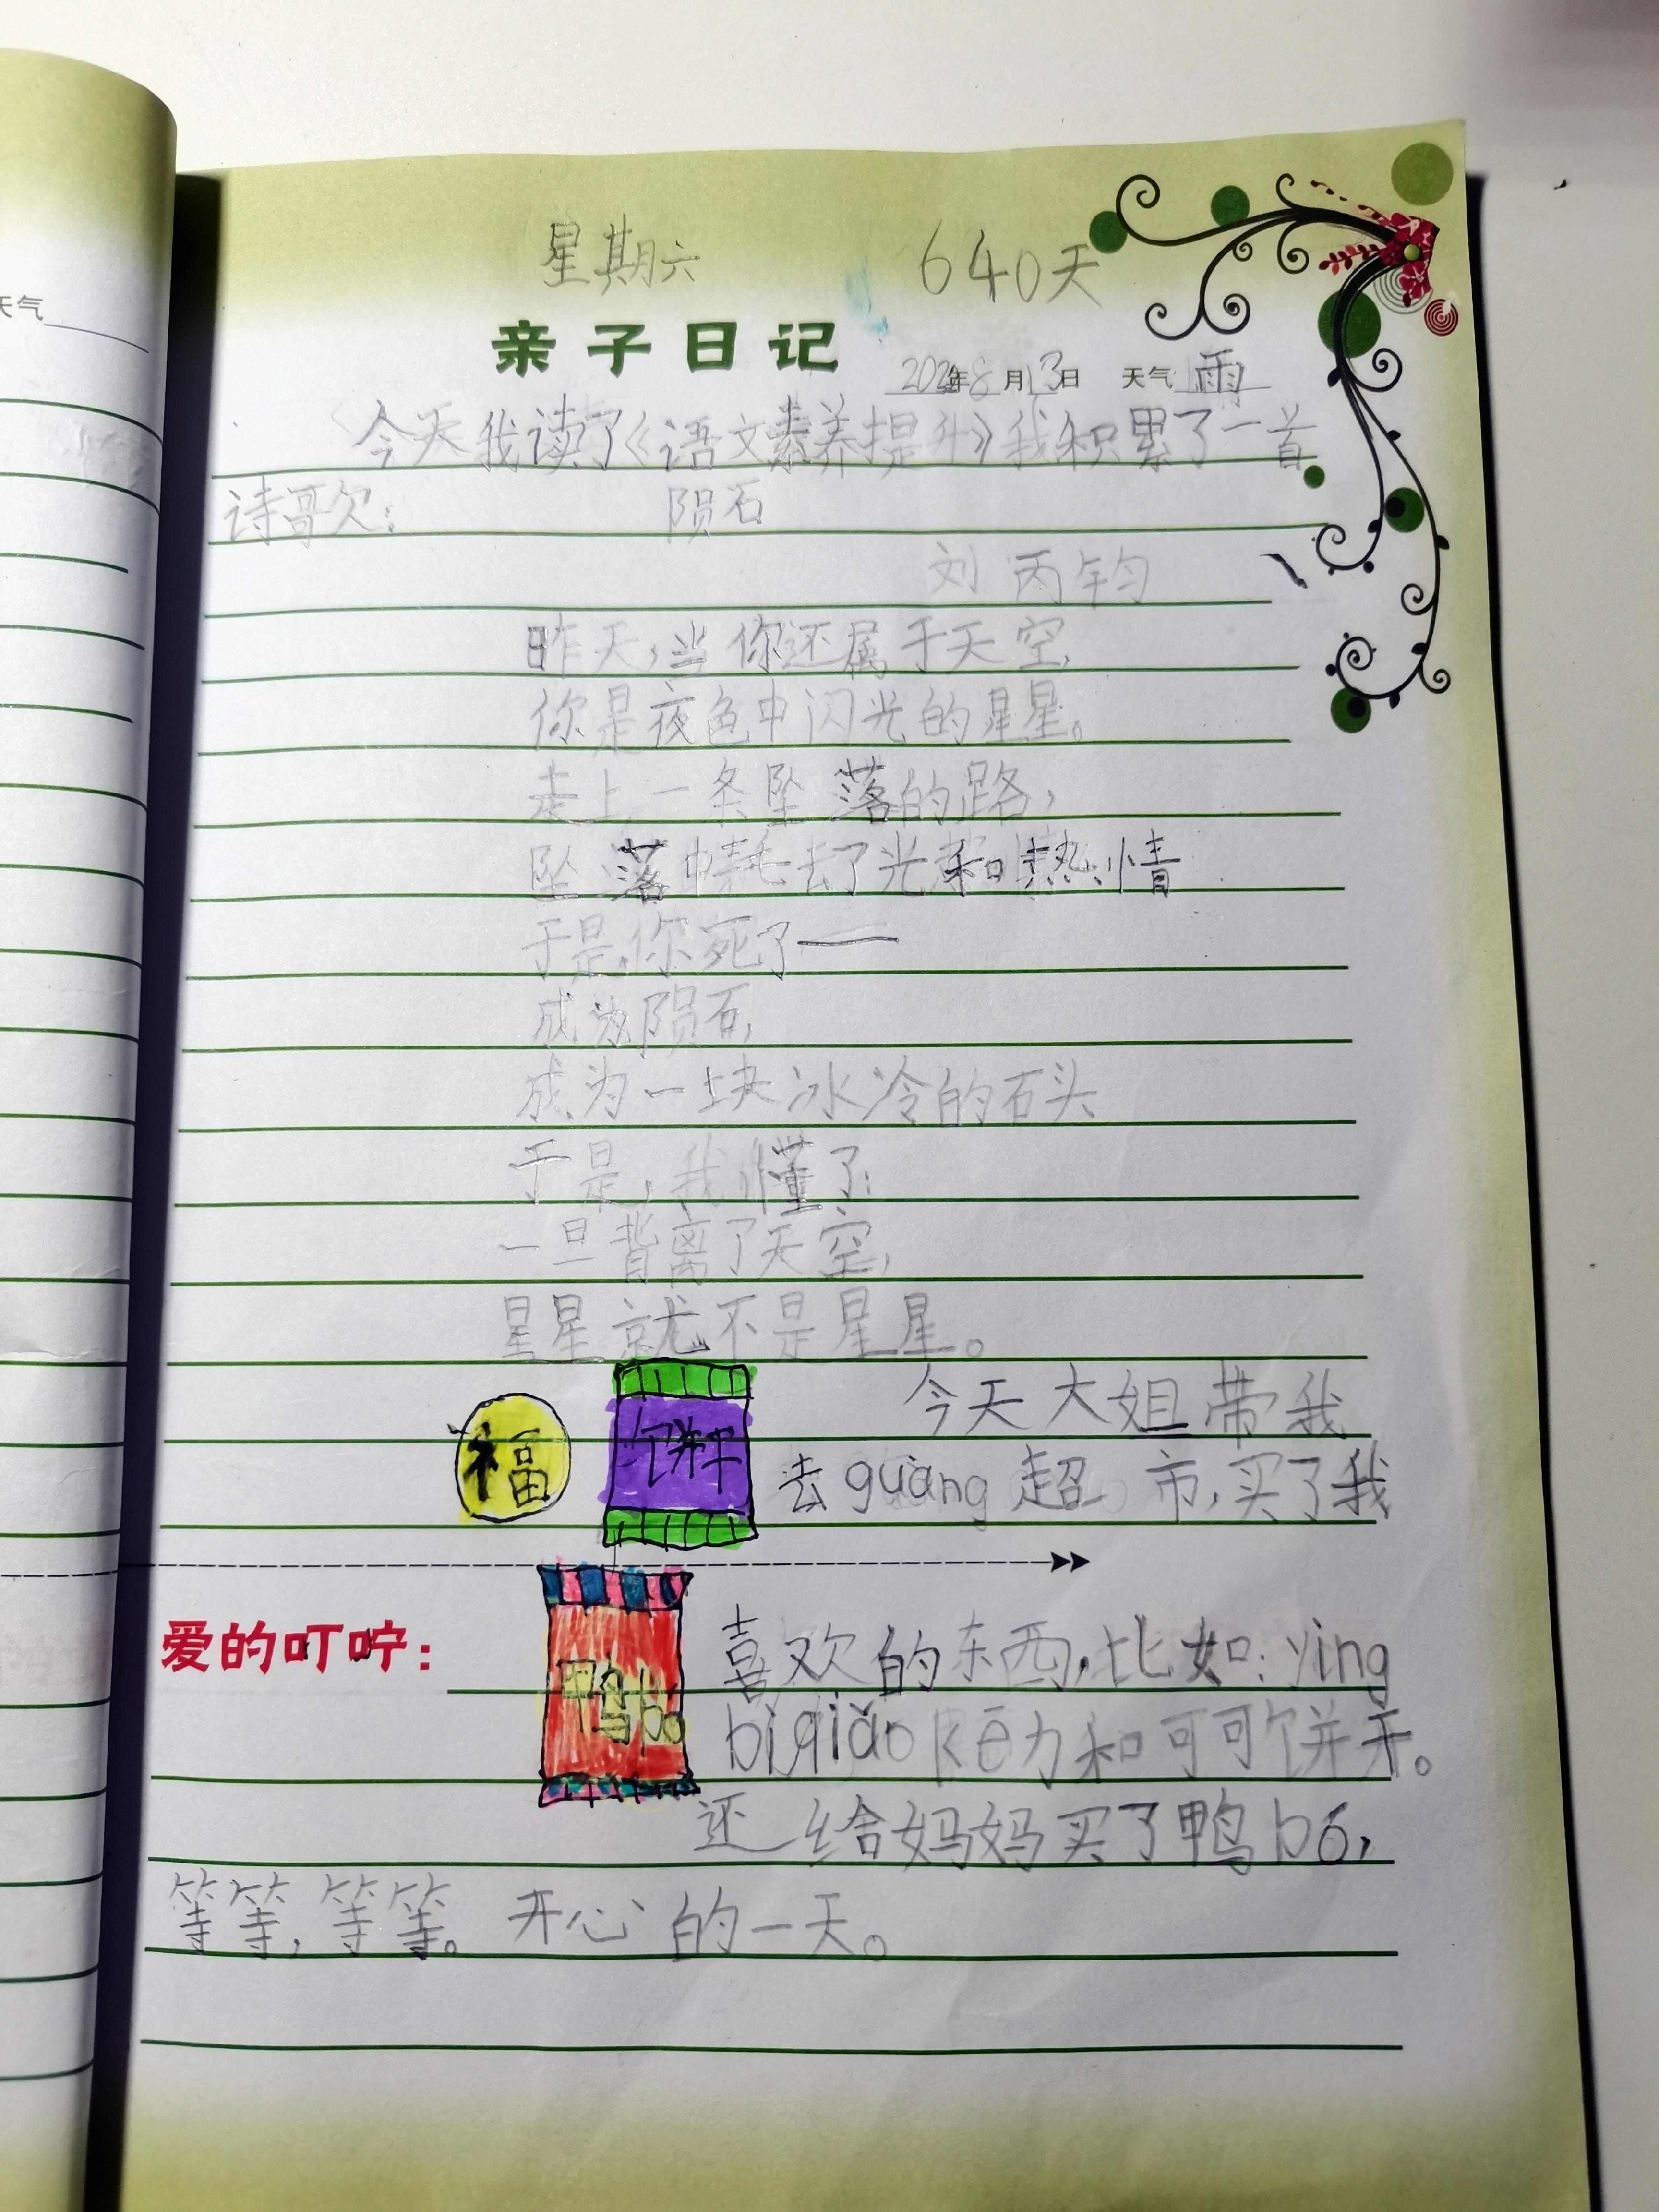 天气
星期六 640天
亲子日记 年8月13日 天气 雨
今天我读了《语文素养提升》我积累了一首
诗歌：
陨石
刘丙钧
昨天，当你还属于天空，
你是夜色中闪光的星星。
走上一条坠落的路，
坠落中耗去了光和热情
于是，你死了——
成为陨石，
成为一块冰冷的石头
于是，我懂了：
一旦背离了天空，
星星就不是星星。
福
饼干
今天大姐带我
去guàng超市，买了我
爱的叮咛：
鸭bo
喜欢的东西，比如：ying
biqiǎo kē力和可可饼干。
还给妈妈买了鸭bó，
等等，等等。开心的一天。